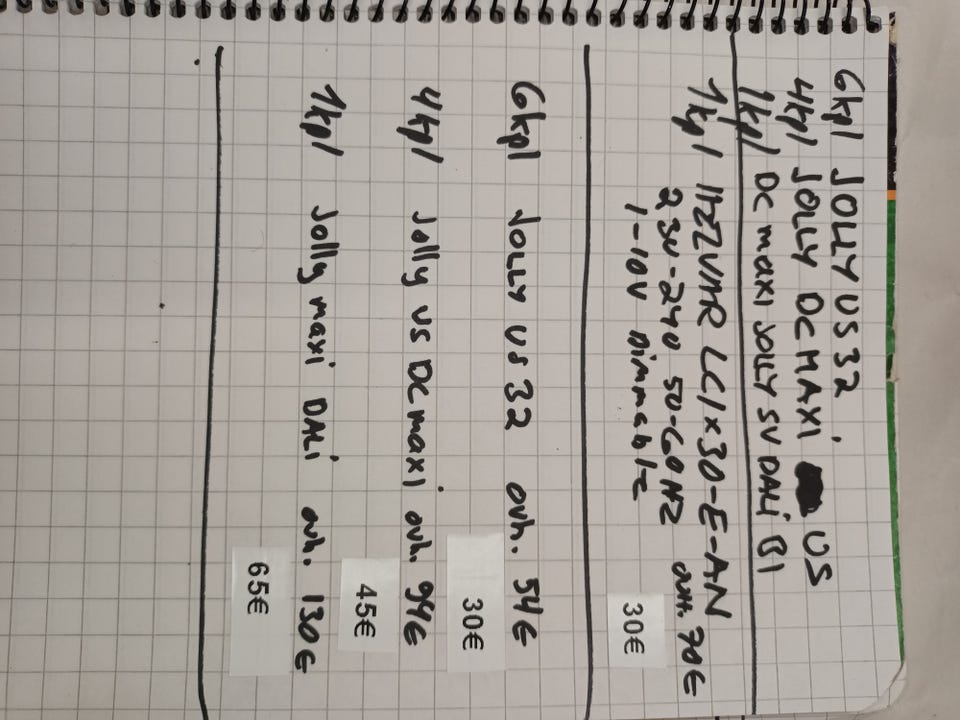 6kpl JOLLY US 32
4kpl JOLLY DC MAXi US
1kpl DC maxi JOLLY SV DALi BI
1kpl LC1x30-E-AN
230-240 50-60HZ ovh. 70€
1-10V Dimmable
30€
6kpl JOLLY US 32 ovh. 54€
30€
4kpl Jolly US DC maxi ovh. 94€
45€
1kpl Jolly maxi DALi ovh. 130€
65€